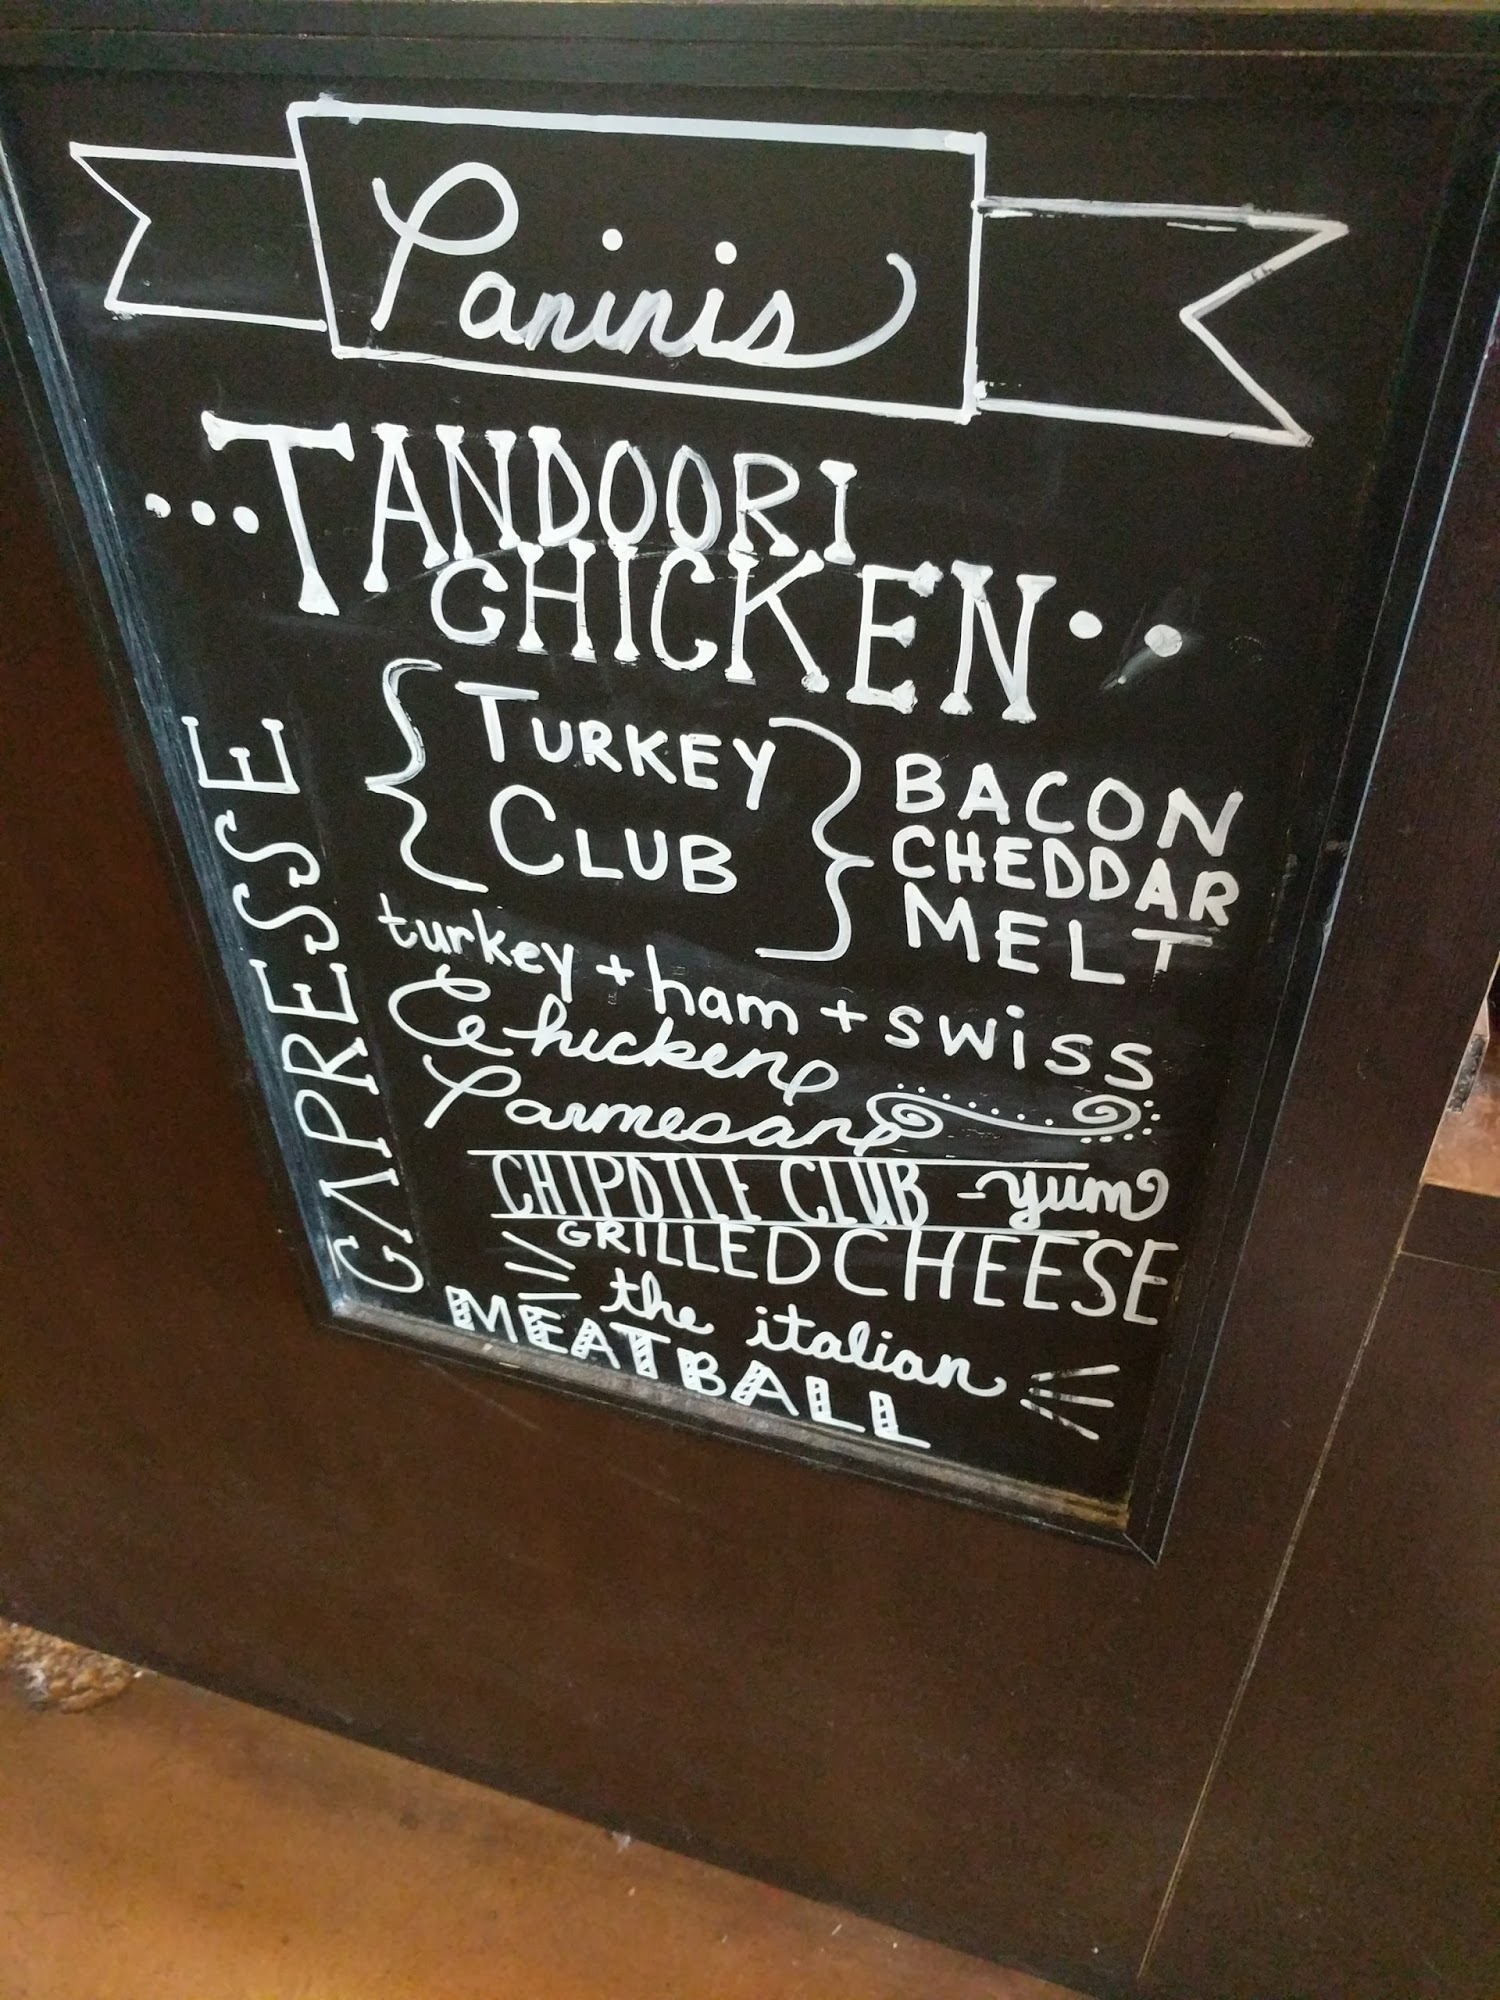 Paninis
...TANDOORI
CHICKEN..
CAPRESSE
{TURKEY
CLUB}
BACON
CHEDDAR
MELT
turkey + ham + swiss
Chicken
Parmesan
CHIPOTLE CLUB -yum
GRILLED CHEESE
the italian
MEATBALL